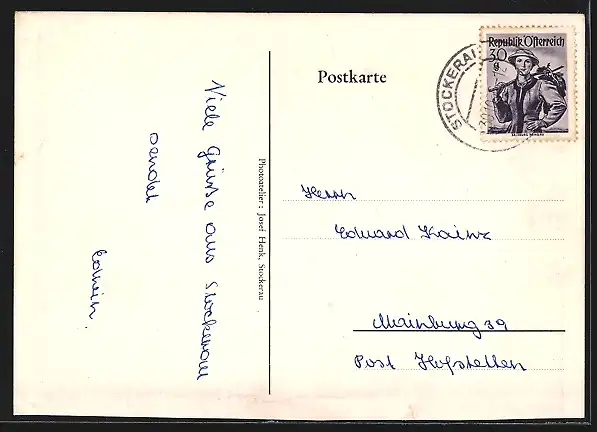 Viele Grüße aus Stockerau
sendet
Edwin.
Photoatelier: Josef Henk, Stockerau
Postkarte
STOCKERAU
Republik Österreich
30
g
Herrn
Eduard Kainz
Mainburg 39
Post Hofstetten